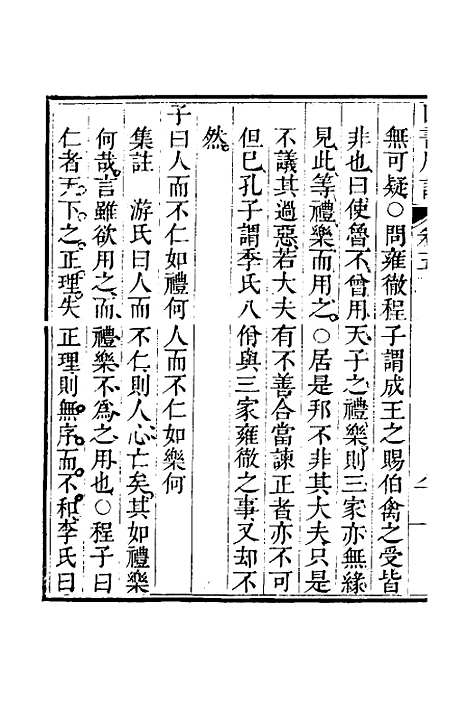 無可疑○問雍徹程子謂成王之賜伯禽之受皆
非也曰使魯不曾用天子之禮樂則三家亦無緣
見此等禮樂而用之○居是邦不非其大夫只是
不議其過惡若大夫有不善合當諫正者亦不可
但已孔子謂季氏八佾與三家雍徹之事又却不
然
子曰人而不仁如禮何人而不仁如樂何
集註 游氏曰人而不仁則人心亡矣其如禮樂
何哉言雖欲用之而禮樂不爲之用也○程子曰
仁者天下之正理失正理則無序而不和李氏曰